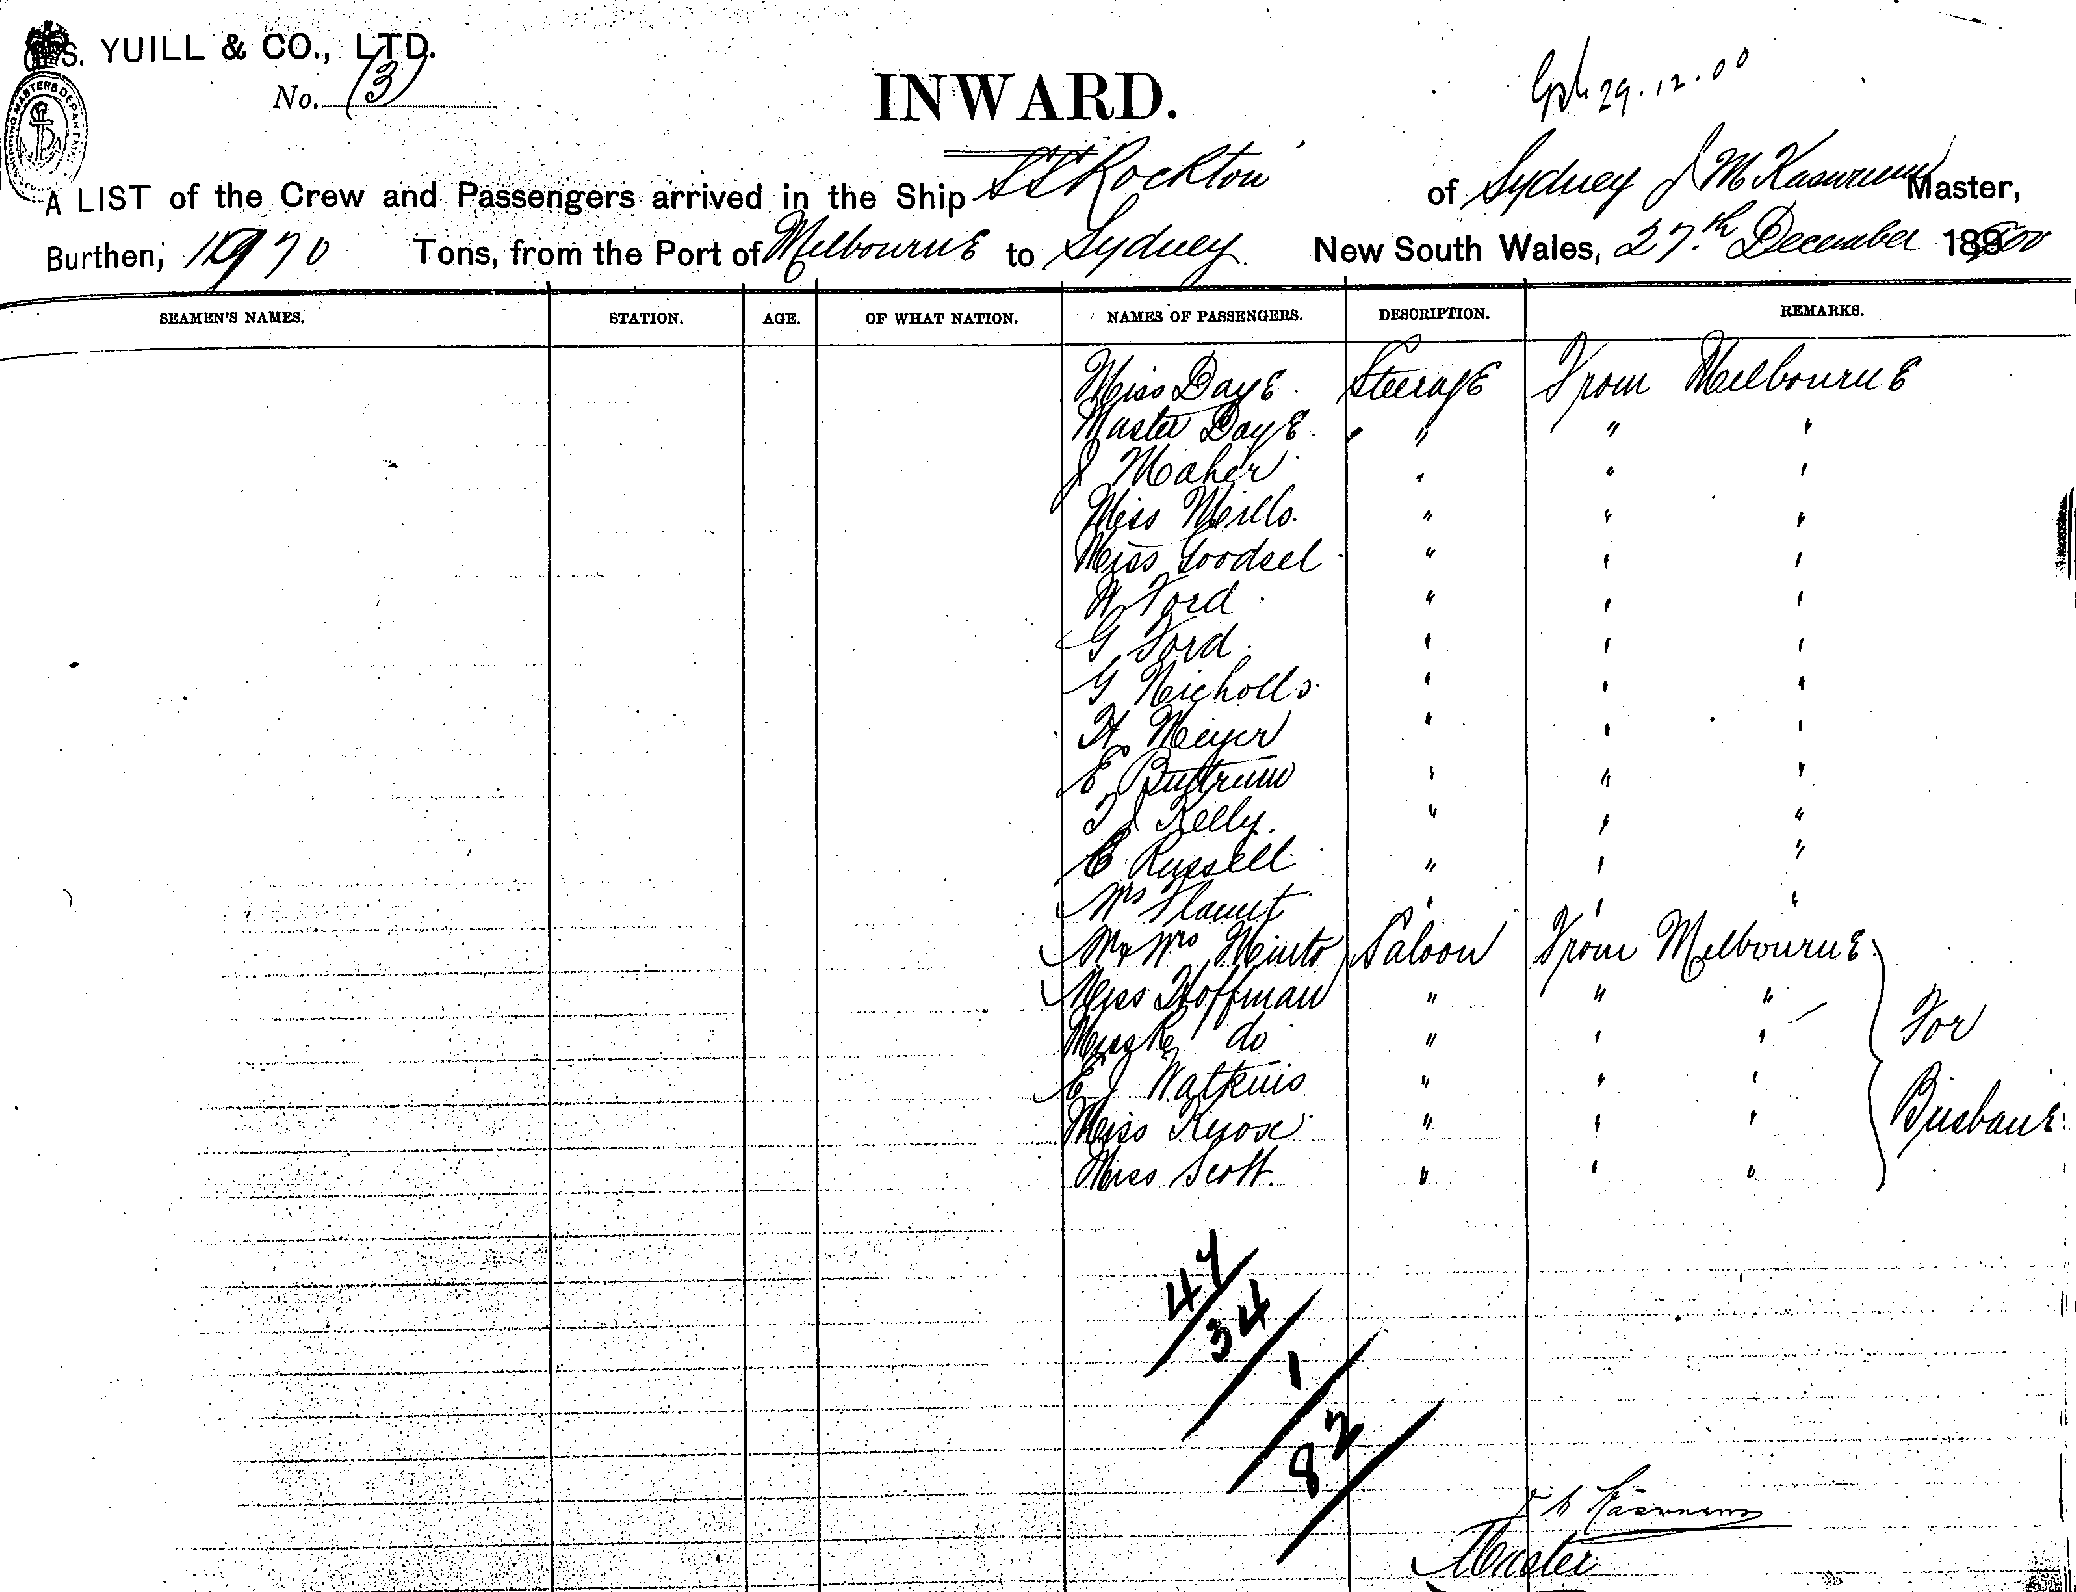 S. YUILL & CO., LTD.
No. (3)
INWARD.
29.12.00
A LIST of the Crew and Passengers arrived in the Ship SS Rockton of Sydney J M Master,
Burthen, 1970 Tons, from the Port of Melbourne to Sydney New South Wales, 27th December 1900
SEAMEN'S NAMES. STATION. AGE. OF WHAT NATION. NAMES OF PASSENGERS. DESCRIPTION. REMARKS.
Miss Daye Steerage From Melbourne
Master Daye " " "
J Maher " " "
Miss Mills " " "
Miss Goodsel " " "
W Ford " " "
G Ford " " "
G Nicholls " " "
H Meyer " " "
E Buttrum " " "
T J Kelly " " "
C Russell " " "
Mrs " " "
Mr & Mrs Minto Saloon From Melbourne
Miss Hoffman " " "
Miss R do " " " For
E J Watkins " " "
Miss Knox " " " Brisbane
Miss Scott " " "
47
34
1
82
Master